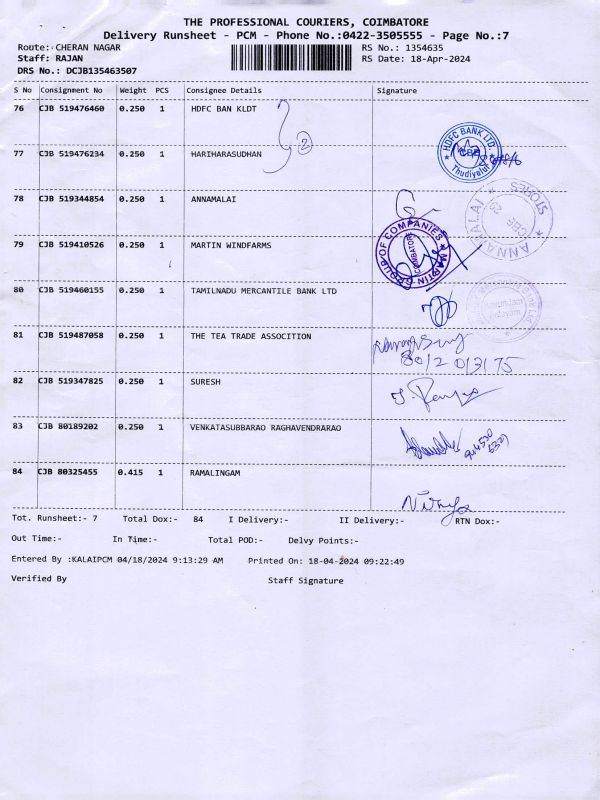 THE PROFESSIONAL COURIERS, COIMBATORE
Delivery Runsheet - PCM - Phone No.:0422-3505555 - Page No.:7
Route: CHERAN NAGAR RS No.: 1354635
Staff: RAJAN RS Date: 18-Apr-2024
DRS No.: DCJB135463507
S No Consignment No Weight PCS Consignee Details Signature
76 CJB 519476460 0.250 1 HDFC BAN KLDT
2
HDFC BANK LTD.
CBE
Thudiyalur
77 CJB 519476234 0.250 1 HARIHARASUDHAN
78 CJB 519344854 0.250 1 ANNAMALAI
ANNAMALAI STORES
CBE
79 CJB 519410526 0.250 1 MARTIN WINDFARMS
MARTIN GROUP OF COMPANIES
COIMBATORE
80 CJB 519460155 0.250 1 TAMILNADU MERCANTILE BANK LTD
81 CJB 519487058 0.250 1 THE TEA TRADE ASSOCITION
82 CJB 519347825 0.250 1 SURESH
83 CJB 80189202 0.250 1 VENKATASUBBARAO RAGHAVENDRARAO
84 CJB 80325455 0.415 1 RAMALINGAM
Nithya
Tot. Runsheet:- 7 Total Dox:- 84 I Delivery:- II Delivery:- RTN Dox:-
Out Time:- In Time:- Total POD:- Delvy Points:-
Entered By :KALAIPCM 04/18/2024 9:13:29 AM Printed On: 18-04-2024 09:22:49
Verified By Staff Signature